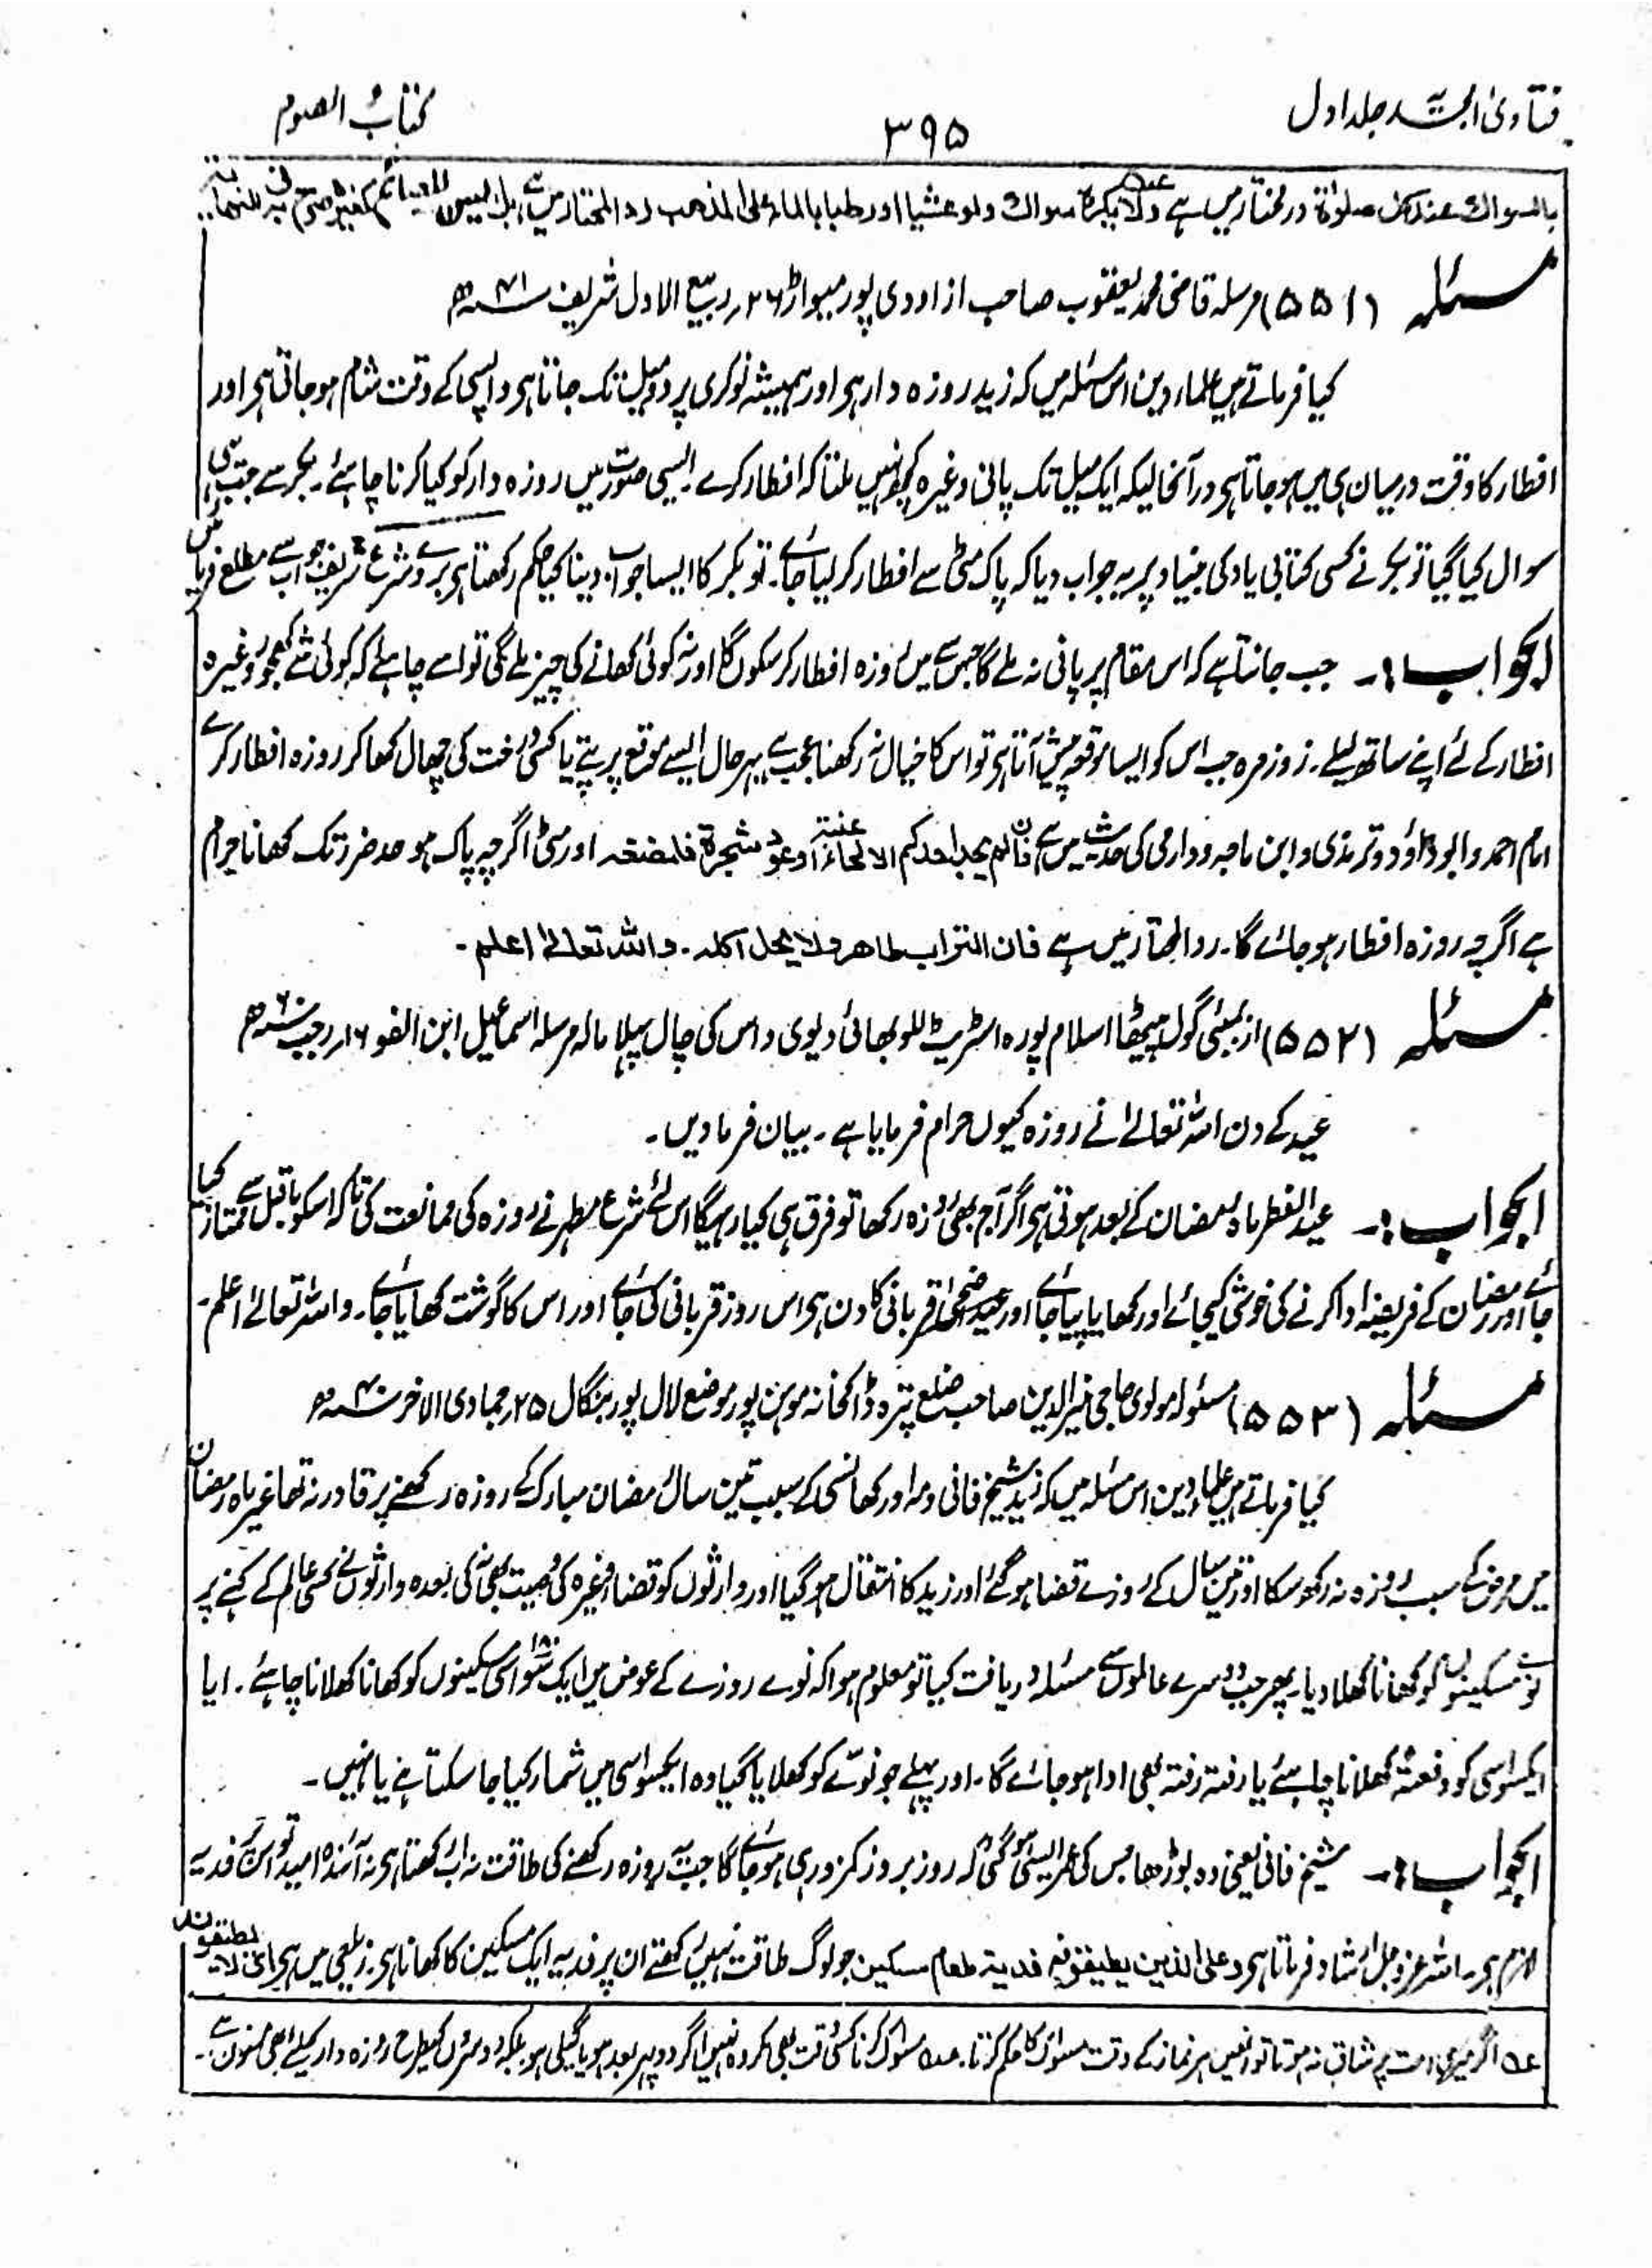 فتاویٰ امجدیہ جلد اول
۳۹۵
کتاب الصوم
بالسواك عند كل صلوٰة درمختار میں ہے ولا یکرہ سواك ولو عشیا او رطبا بالماء علی المذهب رد المحتار میں ہے بل یسن للصائم کغیرہ صرح بہ فی النهایة
مسئلہ (۵۵۱) مرسلہ قاضی محمد یعقوب صاحب از اودی پور میواڑ ۲۶؍ ربیع الاول شریف ۴۱ھ
کیا فرماتے ہیں علماء دین اس مسئلہ میں کہ زید روزہ دار ہی اور ہمیشہ نوکری پر دو میل تک جاتا ہی واپسی کے وقت شام ہو جاتی ہی اور
افطار کا وقت درمیان ہی میں ہو جاتا ہی درآنحالیکہ ایک میل تک پانی وغیرہ کچھ نہیں ملتا کہ افطار کرے ایسی صورت میں روزہ دار کو کیا کرنا چاہئے۔ بکر سے جب یہی
سوال کیا گیا تو بکر نے کسی کتابی یاد کی بنیاد پر یہ جواب دیا کہ پاک مٹی سے افطار کر لیا جائے۔ تو بکر کا ایسا جواب دینا کیا حکم رکھتا ہی بروئے شرع شریف جواب سے مطلع فرمائیں
الجواب :۔ جب جانتا ہے کہ اس مقام پر پانی نہ ملے گا جس سے میں روزہ افطار کر سکوں گا اور نہ کوئی کھانے کی چیز ملے گی تو اسے چاہئے کہ کوئی شے کھجور وغیرہ
افطار کے لئے اپنے ساتھ لیلے۔ روز مرہ جب اس کو ایسا موقعہ پیش آتا ہی تو اس کا خیال نہ رکھنا عجب ہے بہر حال ایسے موقع پر پتے یا کسی درخت کی چھال کھا کر روزہ افطار کرے
امام احمد و ابوداؤد و ترمذی و ابن ماجہ و دارمی کی حدیث میں ہے فان لم یجد احدکم الا لحاء عنبة او عود شجرة فلیمضغه اور مٹی اگرچہ پاک ہو حد ضرر تک کھانا حرام
ہے اگرچہ روزہ افطار ہو جائے گا۔ رد المحتار میں ہے فان التراب طاهر ولا یحل اکله۔ واللہ تعالےٰ اعلم۔
مسئلہ (۵۵۲) از بمبئی گول پیٹھا اسلام پورہ اسٹریٹ للو بھائی دیوی داس کی چال پہلا مالہ مرسلہ اسماعیل ابن الفو ۱۶؍ رجب ۶۰ھ
عید کے دن اللہ تعالےٰ نے روزہ کیوں حرام فرمایا ہے۔ بیان فرمادیں۔
الجواب :۔ عید الفطر ماہ رمضان کے بعد ہوتی ہی اگر آج بھی روزہ رکھا تو فرق ہی کیا رہیگا اس لئے شرع مطہر نے روزہ کی ممانعت کی تاکہ اسکو ماقبل سے ممتاز کیا
جائے اور رمضان کے فریضہ ادا کرنے کی خوشی کیجائے اور کھایا پیا جائے اور عید اضحیٰ قربانی کا دن ہی اس روز قربانی کی جائے اور اس کا گوشت کھایا جائے۔ واللہ تعالےٰ اعلم۔
مسئلہ (۵۵۳) مسئولہ مولوی حاجی الدین صاحب ضلع پترہ ڈاکخانہ موہن پور موضع لال پور بنگال ۲۵؍ جمادی الاخر ۴۰ھ
کیا فرماتے ہیں علماء دین اس مسئلہ میں کہ زید شیخ فانی دمہ اور کھانسی کے سبب تین سال رمضان مبارک کے روزہ رکھنے پر قادر نہ تھا غیر ماہ رمضان
میں مرض کے سبب روزہ نہ رکھ سکا اور تین سال کے روزے قضا ہو گئے اور زید کا انتقال ہو گیا اور وارثوں کو قضا وغیرہ کی وصیت بھی کی بعدہ وارثوں نے کسی عالم کے کہنے پر
نوے مسکینوں کو کھانا کھلا دیا۔ پھر جب دوسرے عالموں سے مسئلہ دریافت کیا تو معلوم ہوا کہ نوے روزے کے عوض میں ایک سو اسی ۱۸۰ مسکینوں کو کھانا کھلانا چاہئے۔ ایا
ایکسو اسی کو دفعۃً کھلانا چاہئے یا رفتہ رفتہ بھی ادا ہو جائے گا۔ اور پہلے جو نوّے کو کھلایا گیا وہ ایکسو اسی میں شمار کیا جا سکتا ہے یا نہیں۔
الجواب :۔ شیخ فانی یعنی وہ بوڑھا جس کی عمر ایسی ہو گئی کہ روز بروز کمزور ہی ہو جائے گا جب یہ روزہ رکھنے کی طاقت نہ اب رکھتا ہی نہ آئندہ امید تو اس پر فدیہ
لازم ہی۔ اللہ عزوجل ارشاد فرماتا ہی وعلی الذین یطیقونه فدیة طعام مسکین جو لوگ طاقت نہیں رکھتے ان پر فدیہ ایک مسکین کا کھانا ہی۔ زیلعی میں ہی ای لا یطیقونه
عہ اگر میری امت پر شاق نہ ہوتا تو انھیں ہر نماز کے وقت مسواک کا حکم کرتا۔ عہ۵ مسواک کرنا کسی وقت بھی مکروہ نہیں اگر دوپہر بعد ہو یا گیلی ہو بلکہ دوسروں کیطرح روزہ دار کیلئے بھی مسنون ہے۔